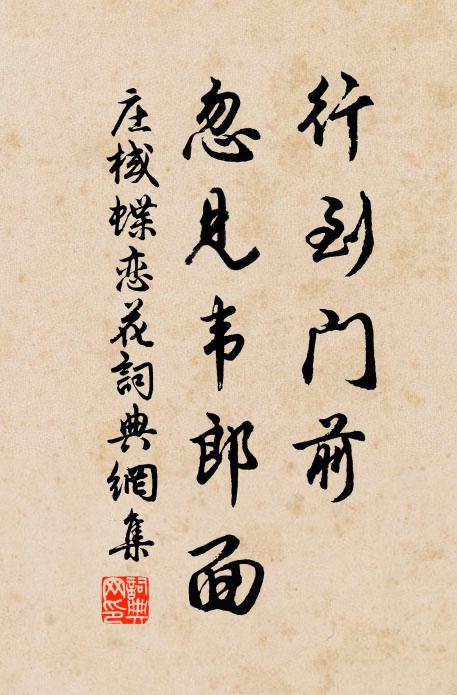 行到门前
忽见韦郎面
庄棫蝶恋花詞典網集
詞典網印